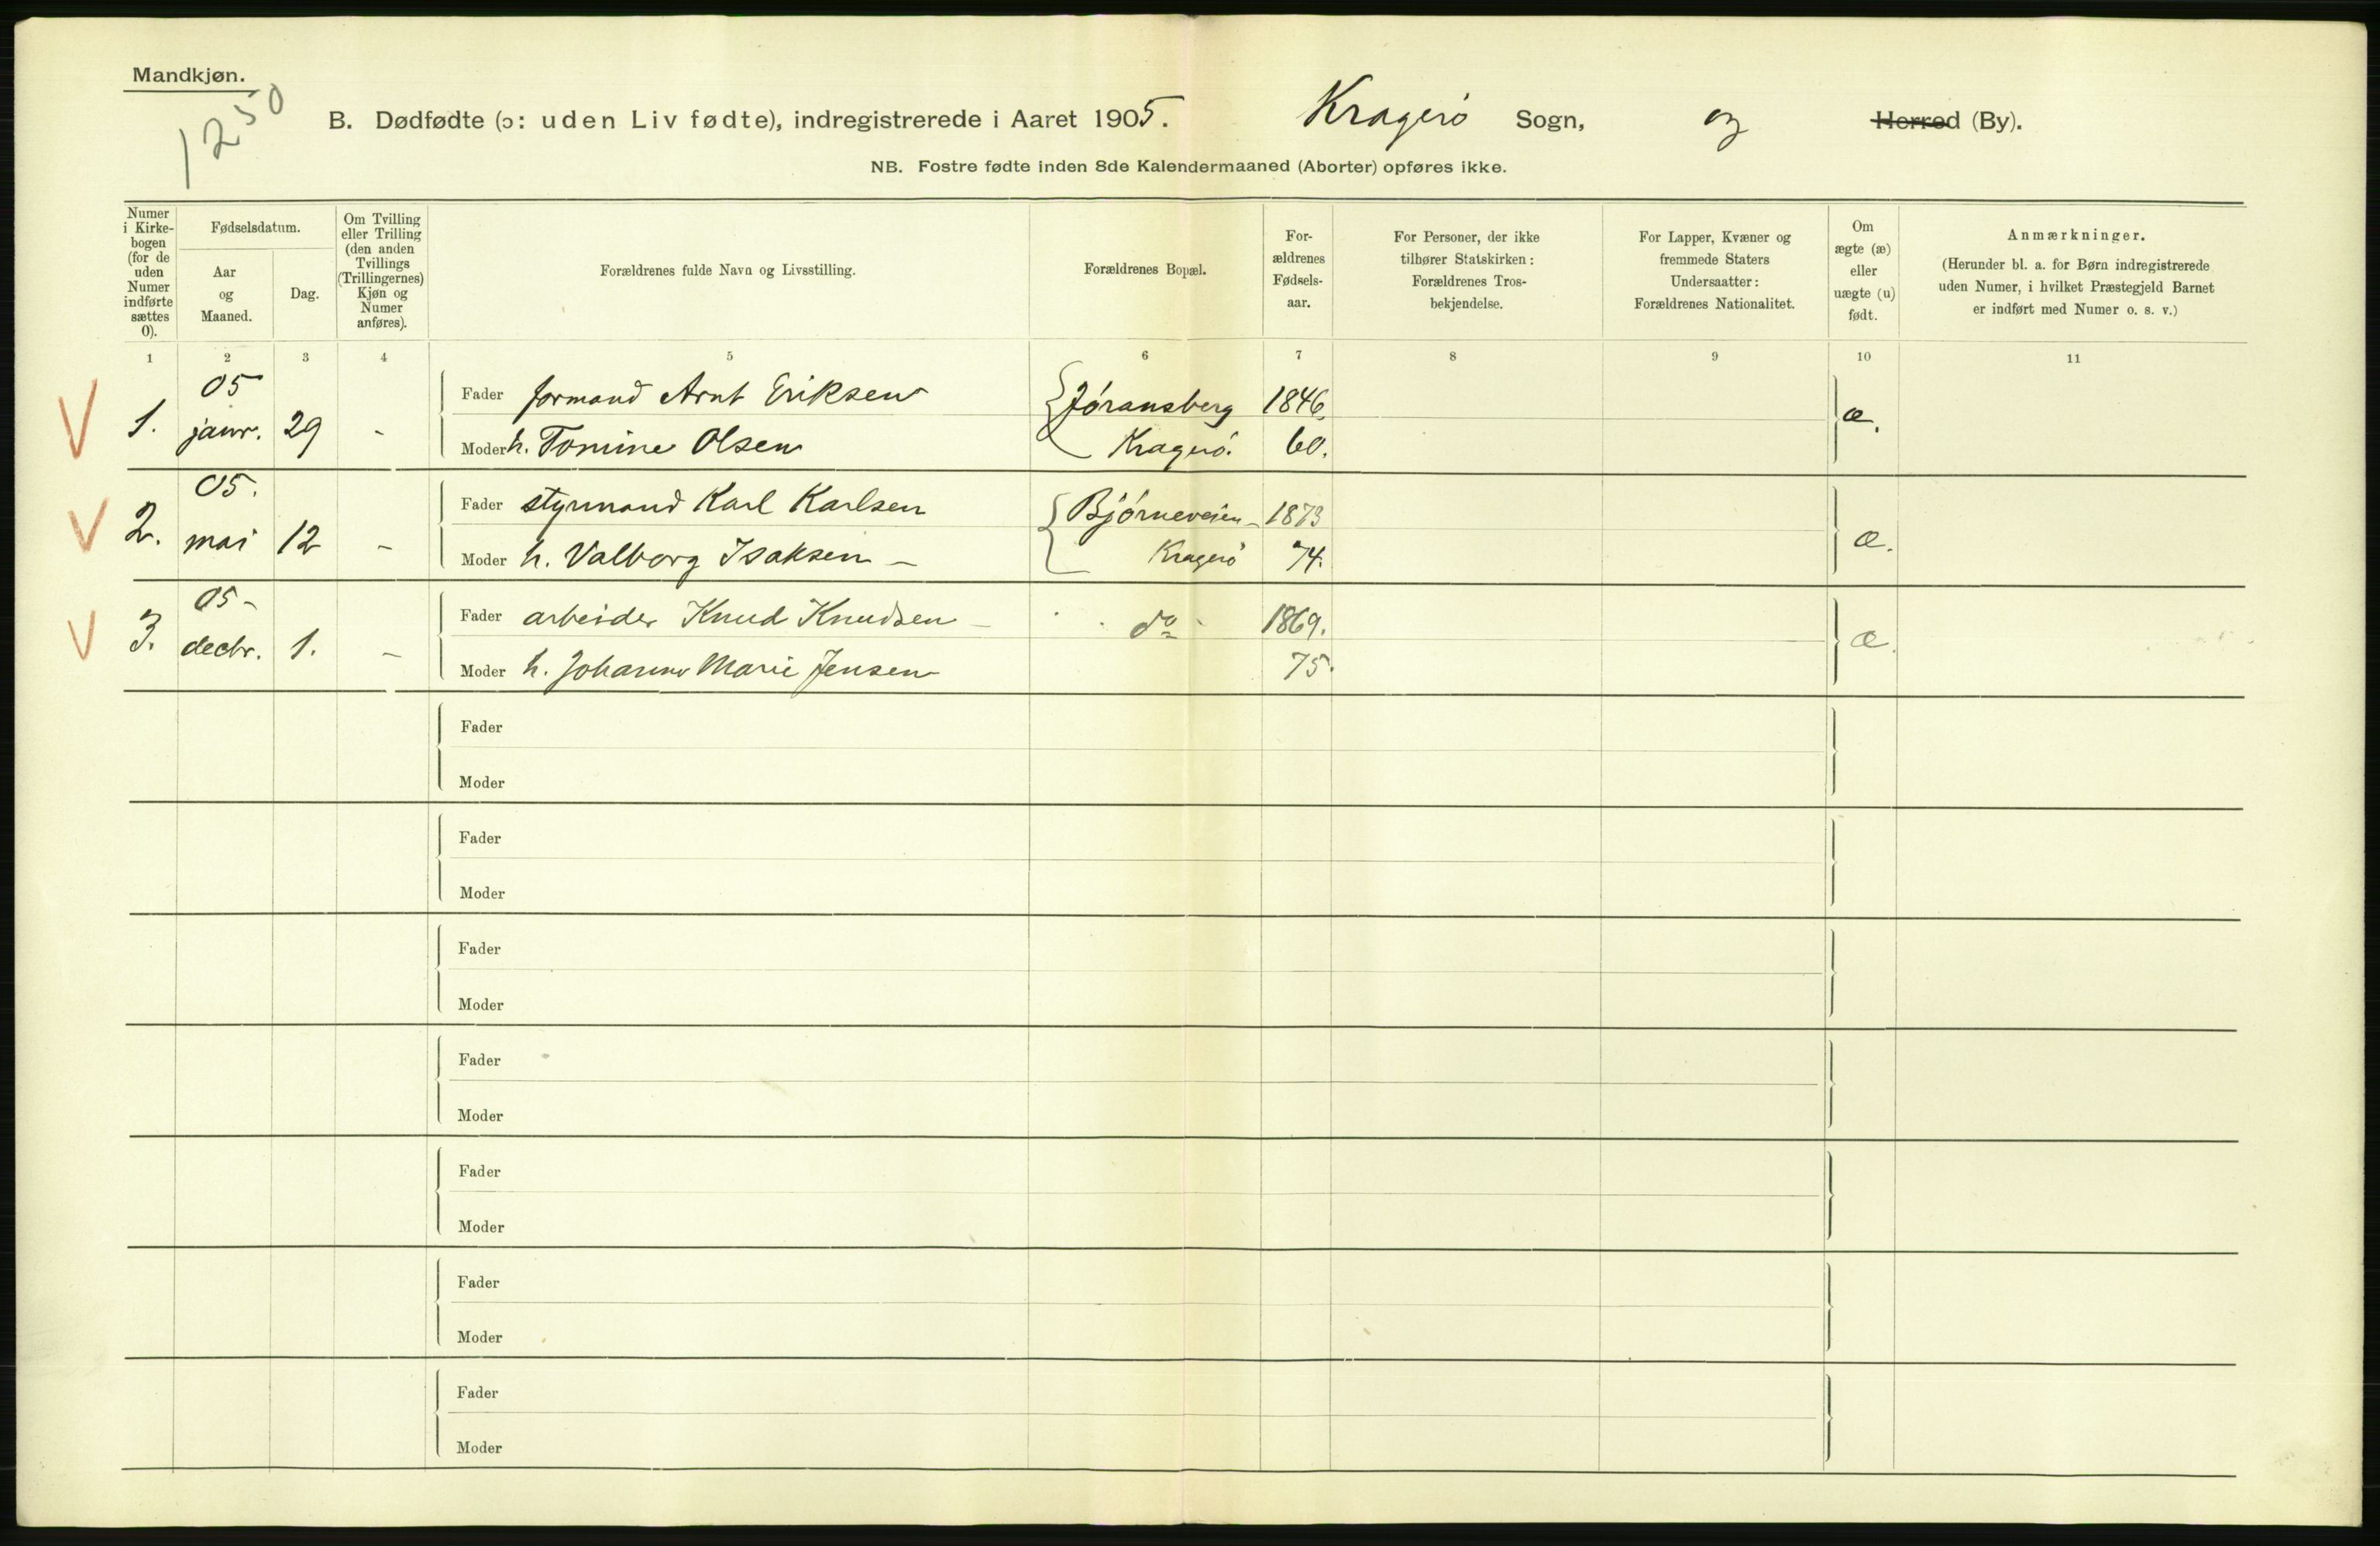 Mandkjøn.
1250
B. Dødfødte (ɔ: uden Liv fødte), indregistrerede i Aaret 1905. Kragerö Sogn, og Herred (By).
NB. Fostre fødte inden 8de Kalendermaaned (Aborter) opføres ikke.
Numer i Kirke-bogen (for de uden Numer indførte sættes 0).
Fødselsdatum.
Aar og Maaned.
Dag.
Om Tvilling eller Trilling (den anden Tvillings (Trillingernes) Kjøn og Numer anføres).
Forældrenes fulde Navn og Livsstilling.
Forældrenes Bopæl.
For-ældrenes Fødsels-aar.
For Personer, der ikke tilhører Statskirken: Forældrenes Tros-bekjendelse.
For Lapper, Kvæner og fremmede Staters Undersaatter: Forældrenes Nationalitet.
Om ægte (æ) eller uægte (u) født.
Anmærkninger.
(Herunder bl. a. for Børn indregistrerede uden Numer, i hvilket Præstegjeld Barnet er indført med Numer o. s. v.)
1 2 3 4 5 6 7 8 9 10 11
05
Fader formand Arnt Eriksen Jöransberg 1846.
1. janr. 29 - Moder h. Tomine Olsen Kragerö. 60. æ.
05.
Fader styrmand Karl Karlsen Björneveien - 1873
2. mai 12 - Moder h. Valborg Isaksen - Kragerö 74. æ.
05-
Fader arbeider Knud Knudsen - do - 1869.
3. decbr. 1. - Moder h. Johanne Marie Jensen 75. æ.
Fader
Moder
Fader
Moder
Fader
Moder
Fader
Moder
Fader
Moder
Fader
Moder
Fader
Moder